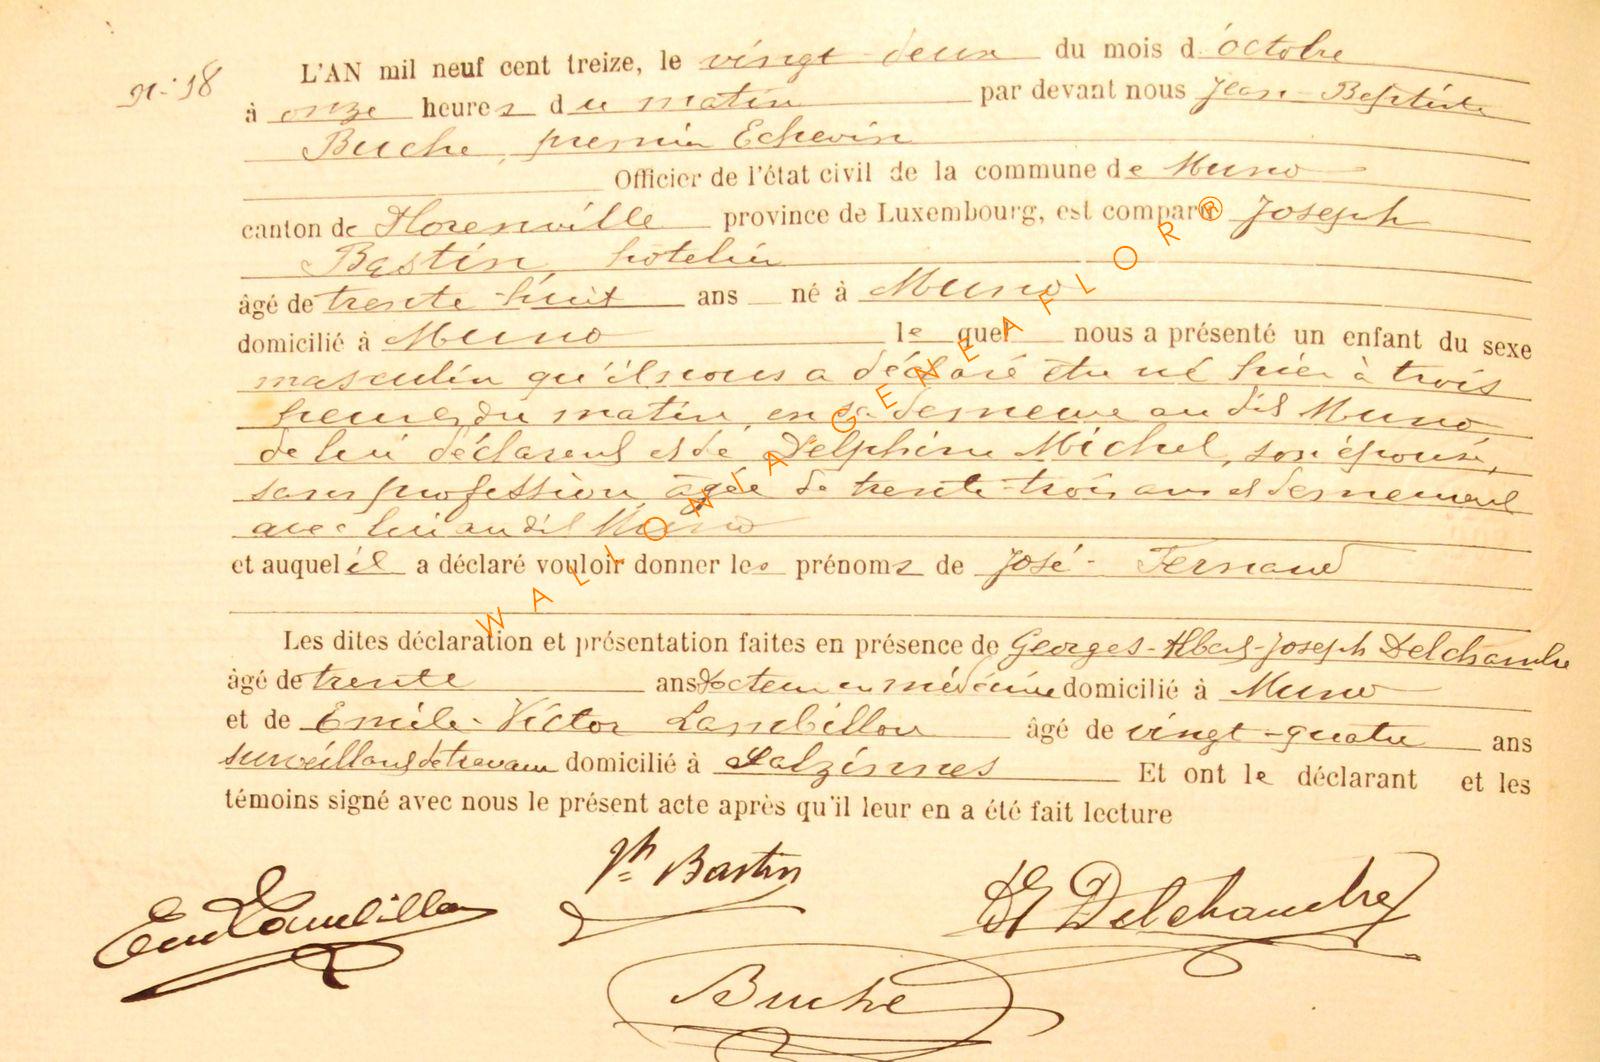 N° 18
L'AN mil neuf cent treize, le vingt deux du mois d'octobre
à onze heures du matin par devant nous Jean-Baptiste
Buche, premier Echevin
Officier de l'état civil de la commune de Muno
canton de Florenville province de Luxembourg, est comparu Joseph
Bastin, hôtelier
âgé de trente-huit ans né à Muno
domicilié à Muno lequel nous a présenté un enfant du sexe
masculin qu'il nous a déclaré être né hier à trois
heures du matin, en sa demeure au dit Muno
de lui déclarant et de Delphine Michel, son épouse,
sans profession, âgée de trente-trois ans et demeurant
avec lui au dit Muno
et auquel il a déclaré vouloir donner les prénoms de José-Fernand
Les dites déclaration et présentation faites en présence de Georges-Albert-Joseph Delchambre
âgé de trente ans docteur en médecine domicilié à Muno
et de Emile-Victor Lambillon âgé de vingt-quatre ans
surveillant de travaux domicilié à Salzinnes Et ont le déclarant et les
témoins signé avec nous le présent acte après qu'il leur en a été fait lecture
Jh Bastin
Em Lambillon
Delchambre
Buche
WALLONIA GENEAFLOR®